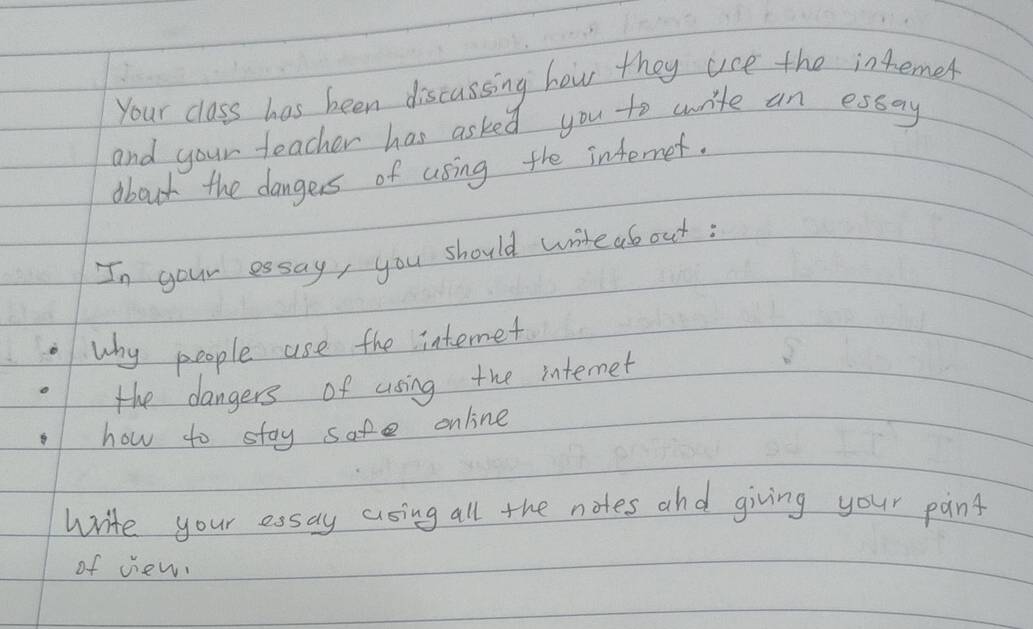 Your class has been discussing how they use the internet
and your teacher has asked you to write an essay
about the dangers of using the internet.
In your essay, you should write about :
• Why people use the internet
• the dangers of using the internet
• how to stay safe online
Write your essay using all the notes and giving your point
of view.